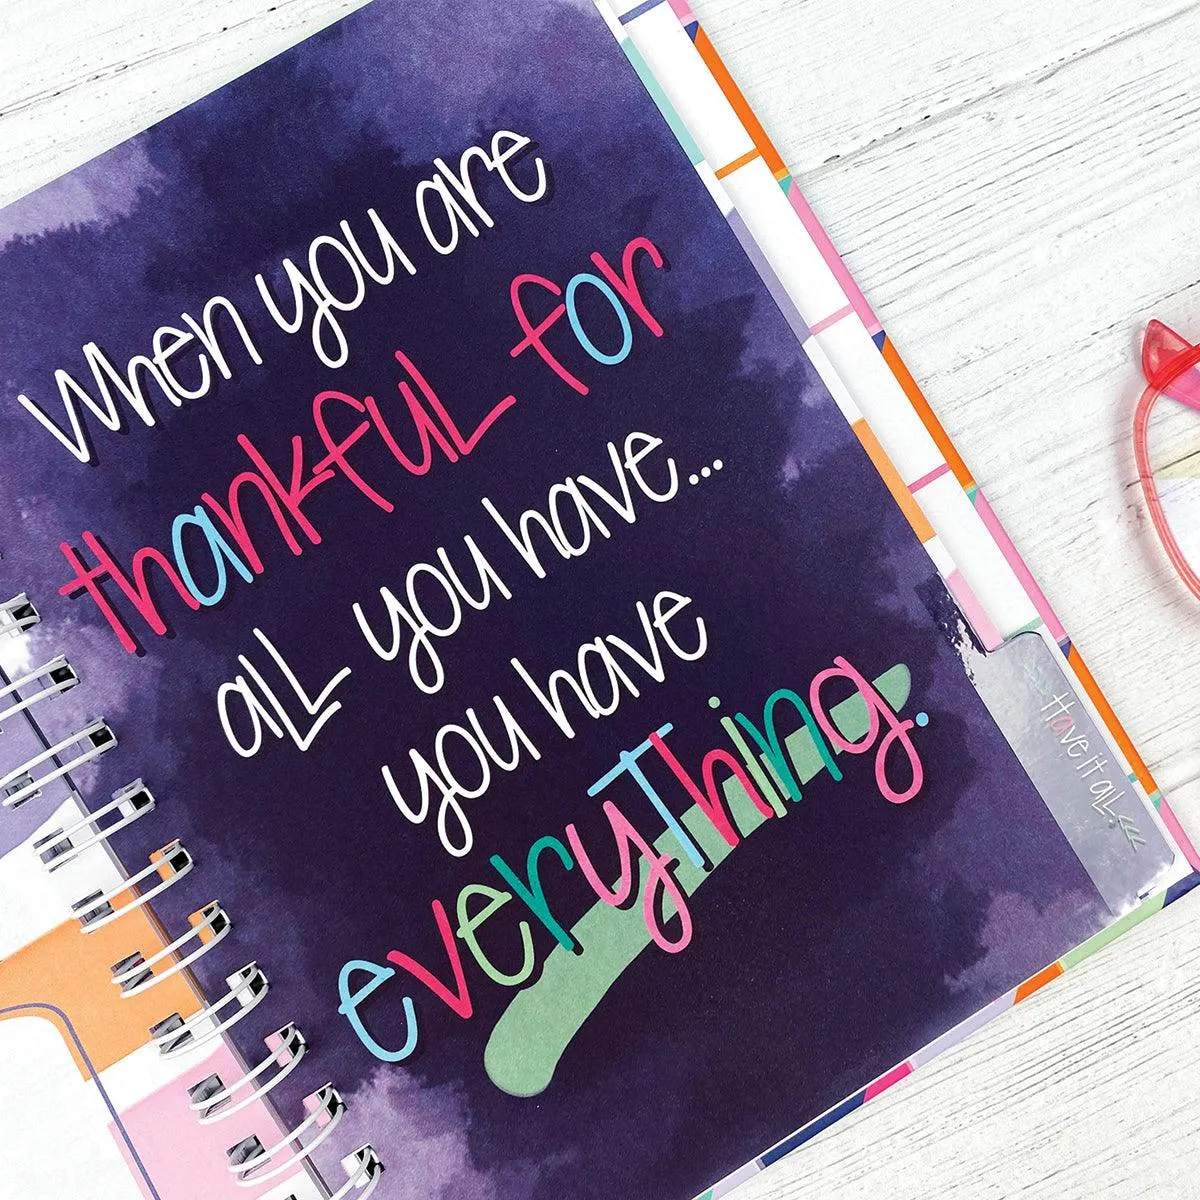 When you are
thankful for
all you have...
you have
everything.
>>> Have it all. <<<